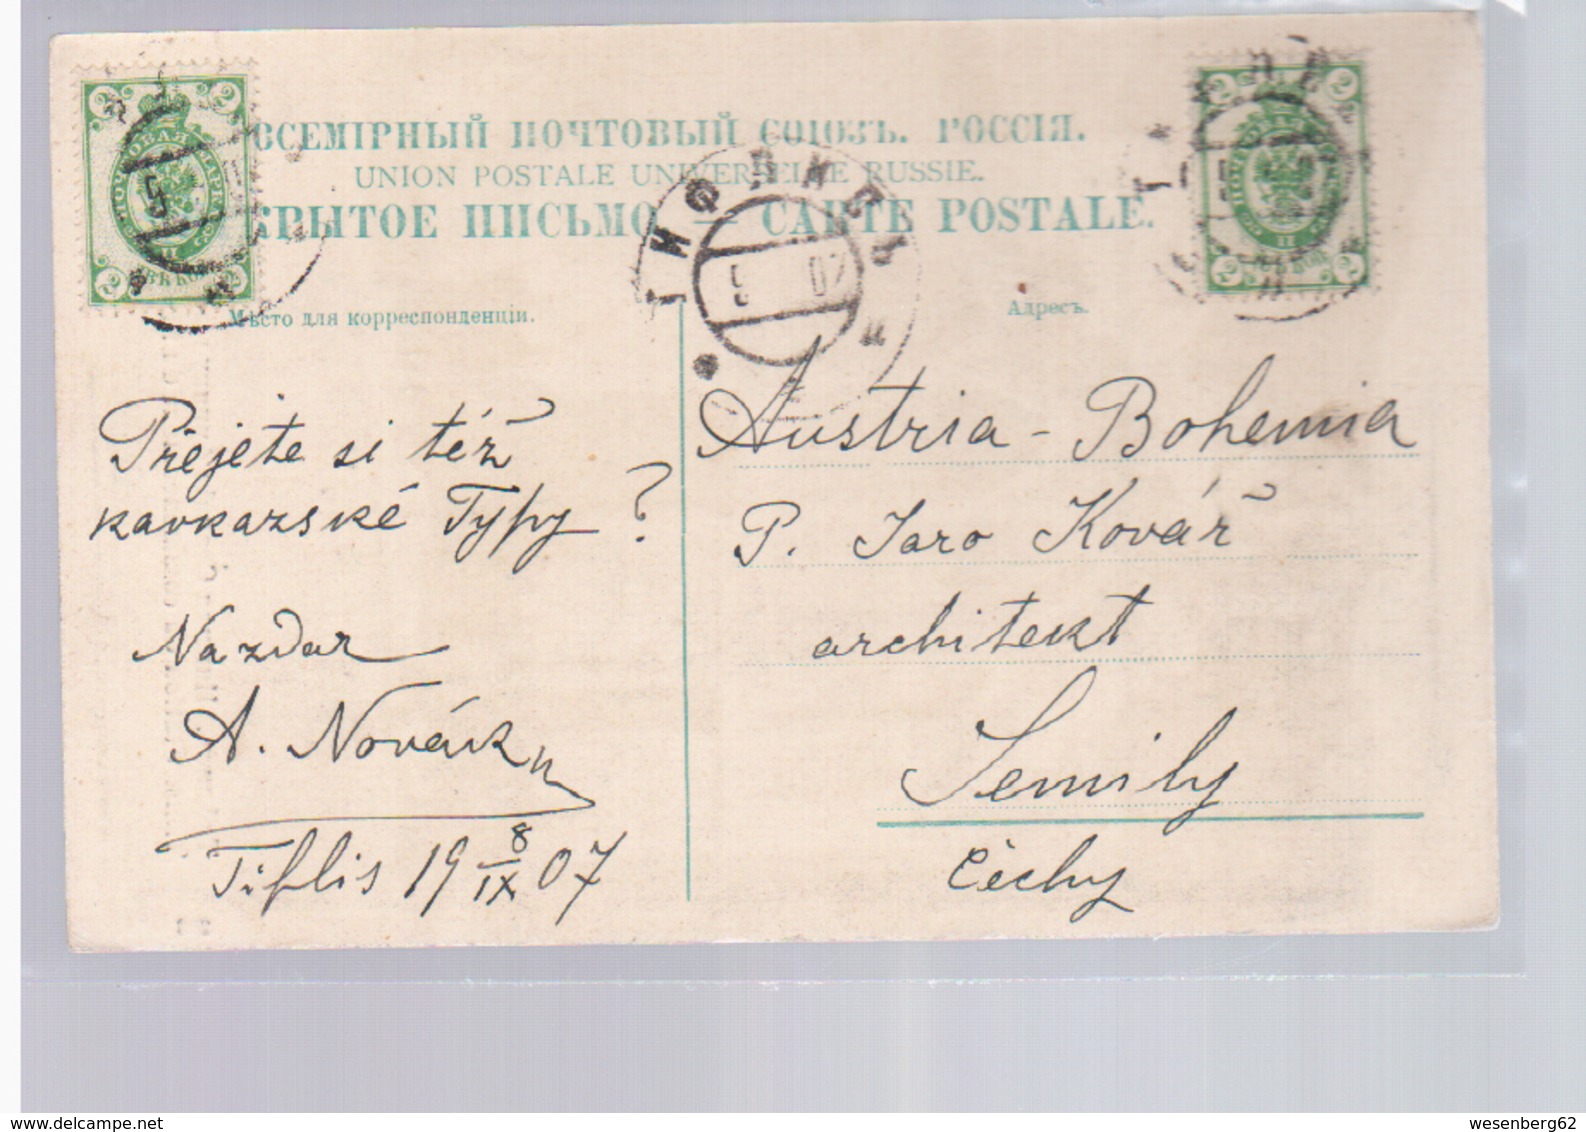 ВСЕМІРНЫЙ ПОЧТОВЫЙ СОЮЗЪ. РОССІЯ.
UNION POSTALE UNIVERSELLE RUSSIE.
КРЫТОЕ ПИСЬМО — CARTE POSTALE.
Мѣсто для корреспонденціи.
Адресъ.
ТИФЛИСЪ
5 07
Přejete si též
kavkazské Typy?
Nazdar
A. Novák
Tiflis 19 8/IX 07
Austria - Bohemia
P. Jaro Kovář
architekt
Semily
Čechy
wesenberg62